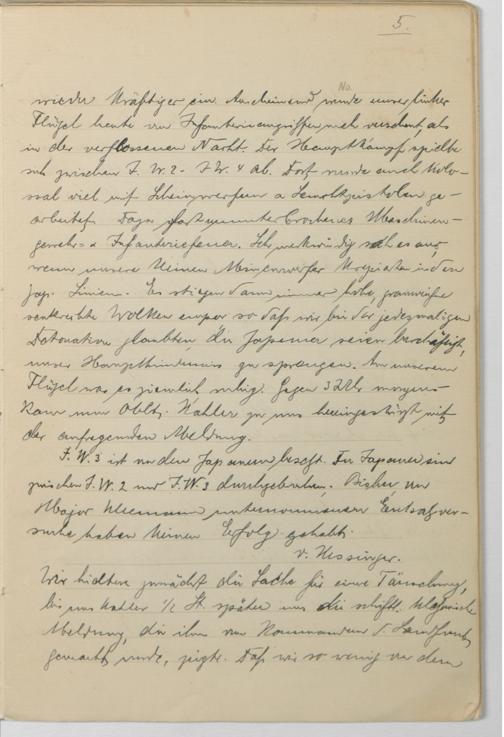 5.
No.
wieder kräftiger ein. Anscheinend wurde unser linker
Flügel heute von Infanterieangriffen mehr verschont, als
in der verflossenen Nacht. Der Hauptkampf spielte
sich zwischen I. W. 2 - I. W. 4 ab. Dort wurde auch kolos-
sal viel mit Scheinwerfern u Leuchtpistolen ge-
arbeitet. Dazu fast ununterbrochenes Maschinen-
gewehr- u Infanteriefeuer. Sehr merkwürdig sah es aus,
wenn unsere kleinen Minenwerfer krepierten in den
jap. Linien. Es stiegen dann immer hohe,
senkrechte Wolken empor so daß wir bei der jedesmaligen
Detonation glaubten, die Japaner seien beschäftigt,
unser Haupthindernis zu sprengen. An unserem
Flügel war es ziemlich ruhig. Gegen 3 Uhr morgens
kam nun Oblt. zu uns hereingestürzt mit
der aufregenden Meldung.
I. W. 3 ist von den Japanern besetzt. Die Japaner sind
zwischen I. W. 2 und I. W. 3 durchgebrochen. Bisher von
Major Kleemann unternommenen Entsatzver-
suche haben keinen Erfolg gehabt.
v. Kessinger.
Wir hielten zunächst die Sache für eine Täuschung,
bis uns 1/2 St. später uns die schriftl.
Meldung, die ihm vom Kommandeur d. Landfront
gemacht wurde, zeigte. Daß wir so wenig von dem